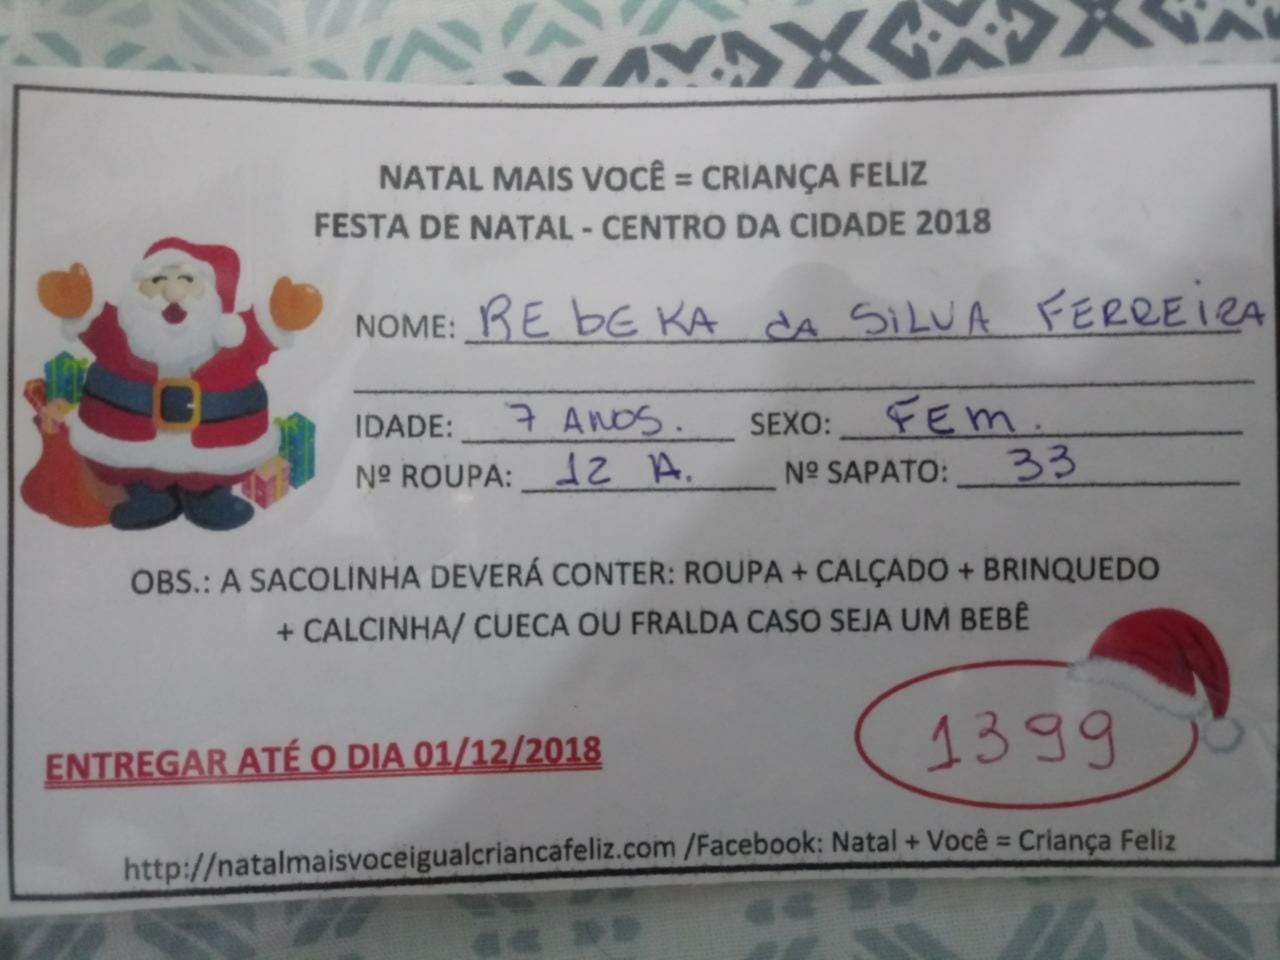 NATAL MAIS VOCÊ = CRIANÇA FELIZ
FESTA DE NATAL - CENTRO DA CIDADE 2018
NOME: REbEKA da SiLVA FERREiRA
IDADE: 7 ANOS. SEXO: FEM.
Nº ROUPA: 12 A. Nº SAPATO: 33
OBS.: A SACOLINHA DEVERÁ CONTER: ROUPA + CALÇADO + BRINQUEDO
+ CALCINHA/ CUECA OU FRALDA CASO SEJA UM BEBÊ
1399
ENTREGAR ATÉ O DIA 01/12/2018
http://natalmaisvoceigualcriancafeliz.com /Facebook: Natal + Você = Criança Feliz